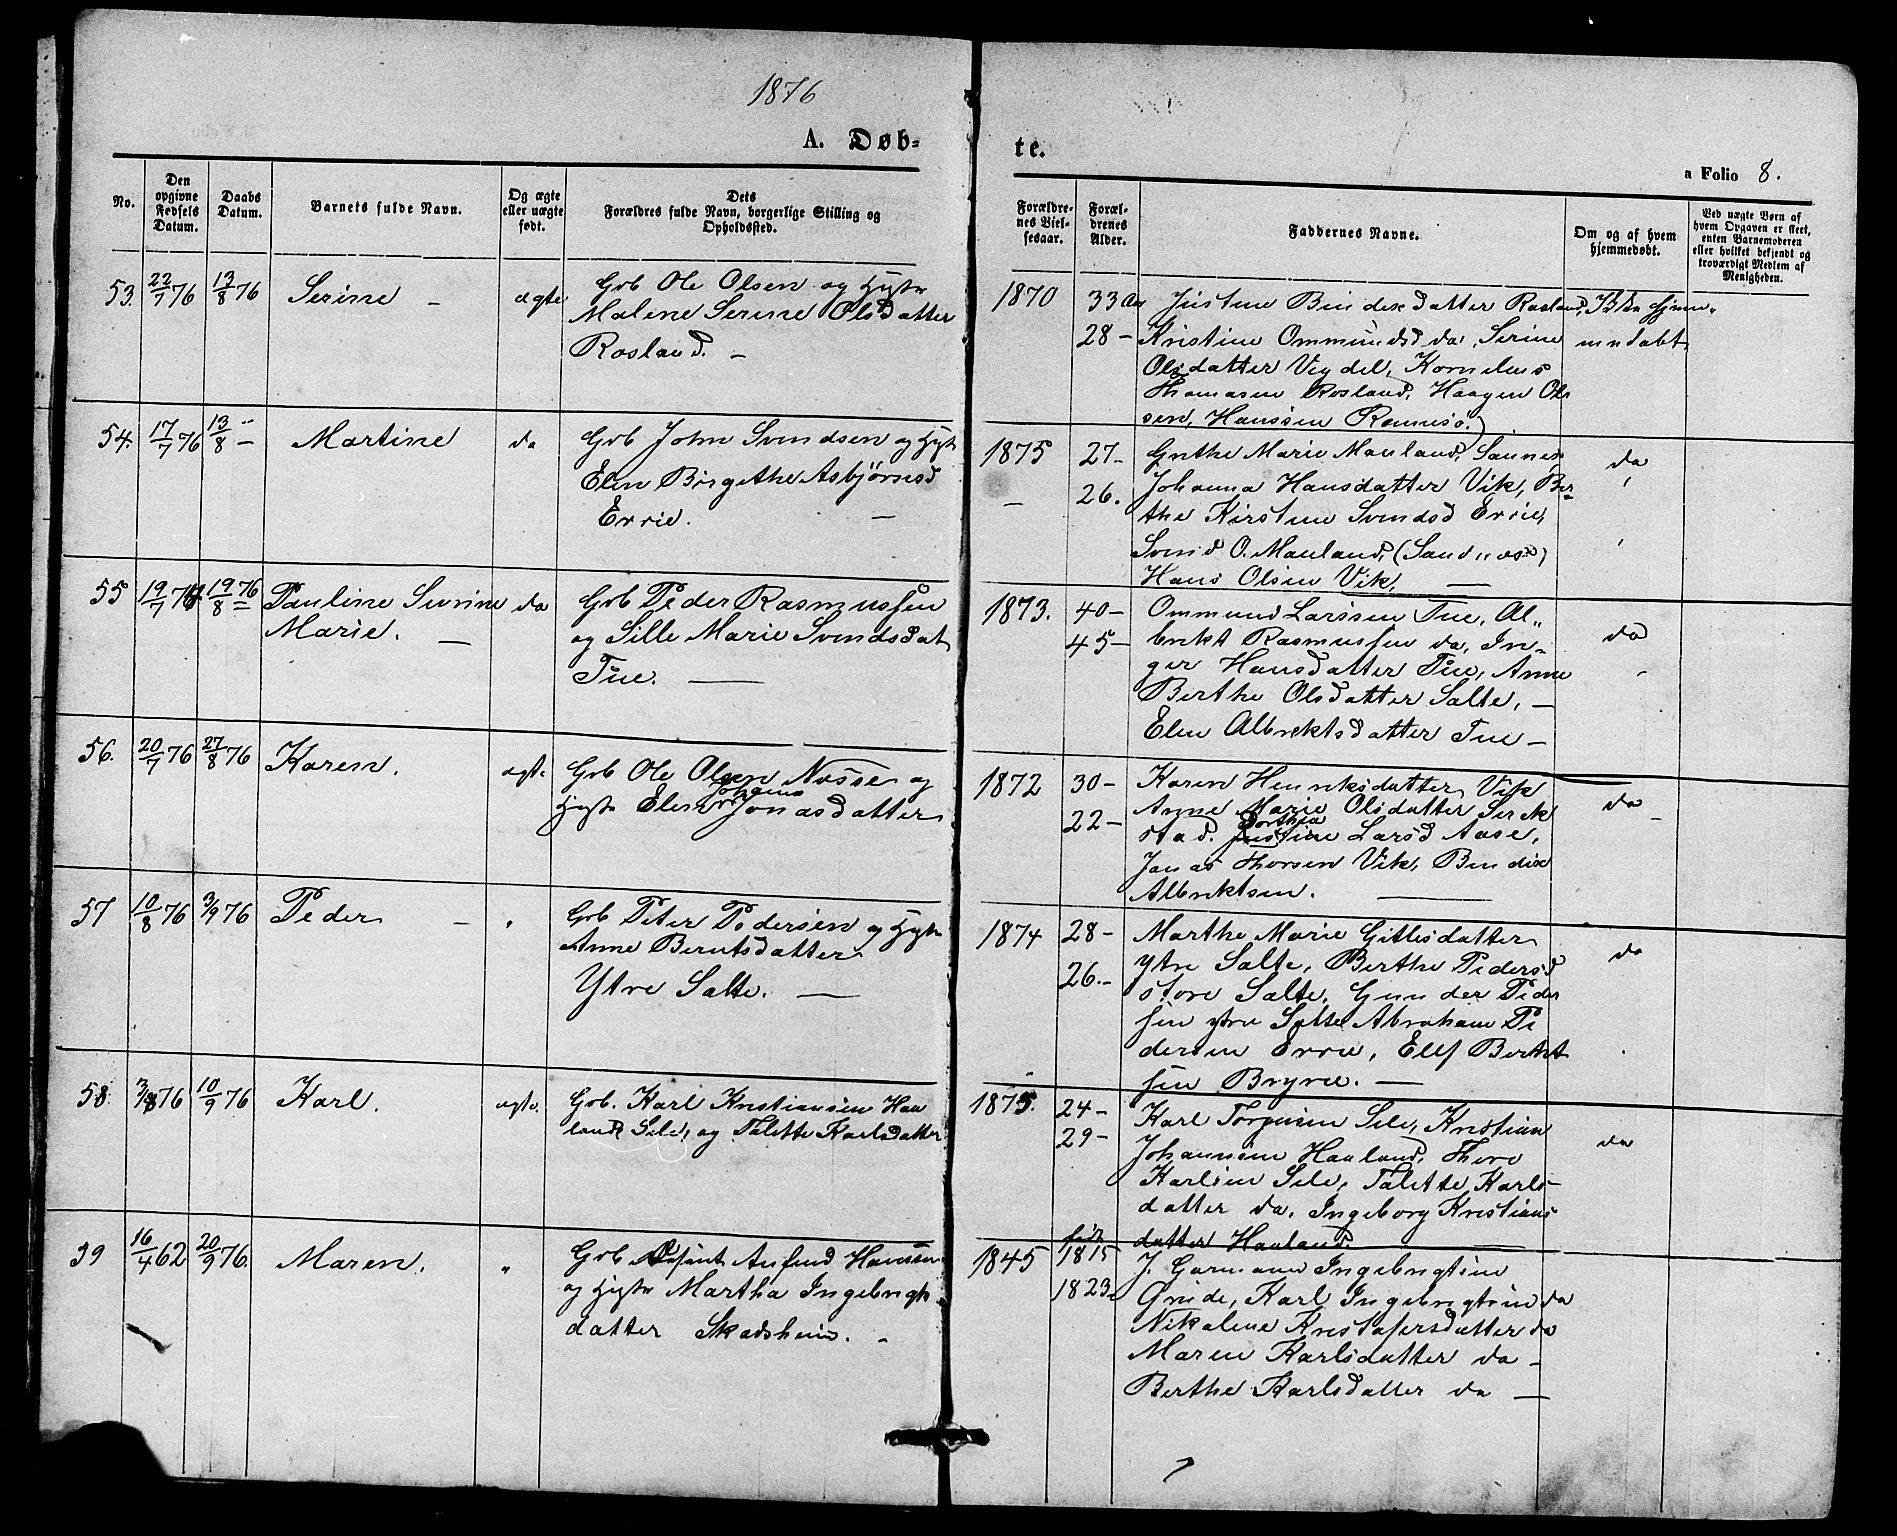 1876
A. Døb-
te.
a Folio 8.
No.
Den
opgivne
Fødsels
Datum.
Daabs
Datum.
Barnets fulde Navn.
Og ægte
eller uægte
født.
Dets
Forældres fulde Navn, borgerlige Stilling og
Opholdssted.
Forældre-
nes Viel-
sesaar.
Foræl-
drenes
Alder.
Faddernes Navne.
Om og af hvem
hjemmedøbt.
Ved uægte Børn af
hvem Opgaven er skeet,
enten Barnemoderen
eller hvilket bekjendt og
troværdigt Medlem af
Menigheden.
53. 22/7 76 13/8 76 Serine - ægte
Gb Ole Olsen og Hustr
Malene Serine Olsdatter
Rosland. -
1870 33 Aar
28 -
Justine Bendixdatter Rosland,
Kristine Ommundsd da, Serine
Olsdatter Vigdel, Kornelius
Thomasen Rosland, Haagen Ol-
sen, Hanssen
54. 17/7 76 13/8 - Martine da
Gb John Svendsen og Hust
Elen Birgithe Asbjørnsd
Errie. -
1875 27-
- 26.
Grethe Marie Mauland, Sannes
Johanna Hansdatter Vik, Ber-
the Kirstine Svendsd Errie,
Svend O. Mauland, (Sandnæs)
Hans Olsen Vik, -
da
55 19/7 76 19/8 76 Pauline Serine da
Marie. -
Gb Peder Rasmussen
og Sille Marie Svendsdat
Tue. -
1873. 40-
45-
Ommund Larssen Tue, Al-
brekt Rasmussen da, In-
ger Hansdatter Tue, Anne
Berthe Olsdatter Salte, -
Elen Albrektsdatter Tue -
da
56. 20/7 76 27/8 76 Karen. ægt.
Gb Ole Olsen Næsse og
Hustr Elen Jonasdatter
1872 30-
22-
Karen Henriksdatter Vik
Anne Marie Olsdatter
stad. Dorthea Larsd Aase,
Jonas Thorsen Vik, Bendix
Albrektsen. -
da -
57 10/8 76 3/9 76 Peder - "
Gb Peter Pedersen og Hustr
Anne Berntsdatter
Ytre Salte. -
1874 28-
26.-
Marthe Marie Gitlesdatter
ytre Salte, Berthe Pedersd
store Salte, Gunder Peder
sen ytre Salte Abraham Pe
dersen Errie, Ellef Bertel
sen Bryne. -
da
58. 3/8 76 10/9 76 Karl. ægte.
Gb. Karl Kristiansen Hau
land Sele, og Talette Karlsdatter
1875. 24-
29-
Karl Torgersen Sele, Kristian
Johannesen Hauland, Thore
Karlsen Sele, Talette Karls-
datter da, Ingeborg Kristians
datter Hauland.
da
59 16/4 62 20/9 76. Maren. "
Gb Aufind Hanssen
og Hustr Martha Ingebrigts
datter Skadsheim. -
1845 født
1815
1823.
J. Garmann Ingebrigtsen
Grude, Karl Ingebrigtsen da
Nikoline Kristofersdatter do
Maren Karlsdatter da -
Berthe Karlsdatter da -